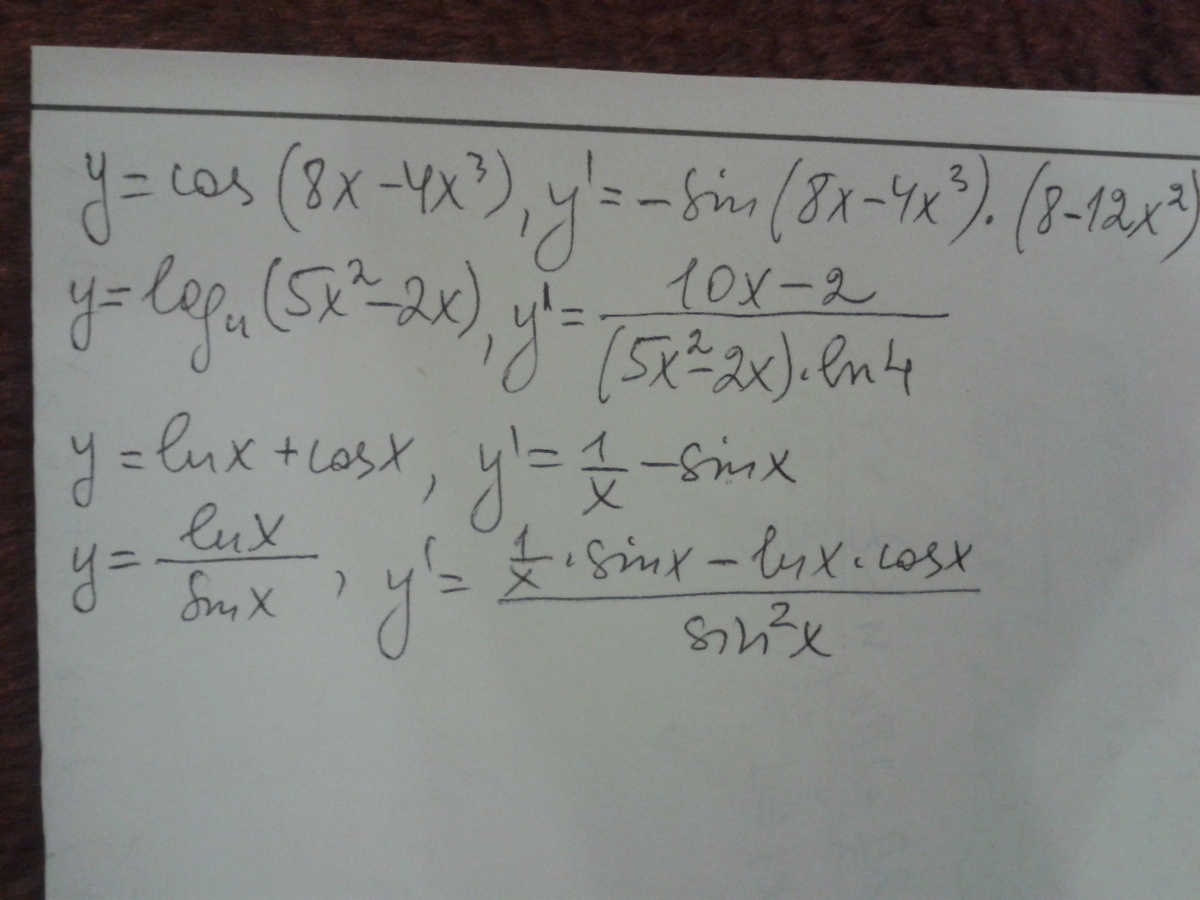 y = cos (8x - 4x³), y' = - sin (8x - 4x³) · (8 - 12x²)
y = log₄ (5x² - 2x), y' = (10x - 2) / ((5x² - 2x) · ln 4)
y = ln x + cos x, y' = 1/x - sin x
y = ln x / sin x, y' = (1/x · sin x - ln x · cos x) / sin² x